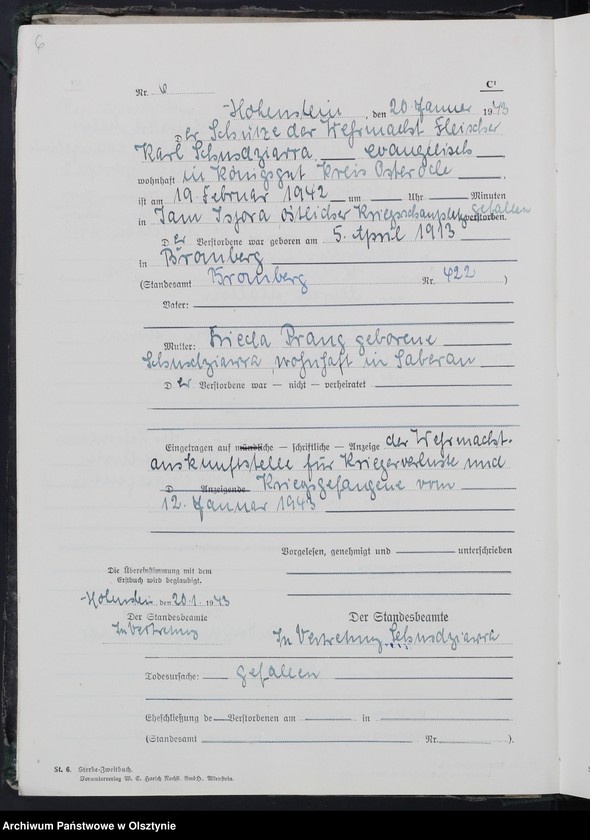 6
Nr. 6 C¹
Hohenstein, den 20. Januar 1943
Der Schütze der Wehrmacht Fleischer
Karl evangelisch
wohnhaft in Königsgut Kreis Osterode
ist am 19. Februar 1942 um Uhr Minuten
in östlicher Kriegsschauplatz gefallen verstorben.
D er Verstorbene war geboren am 5. April 1913
in Bromberg
(Standesamt Bromberg Nr. 422)
Vater:
Mutter: Frieda Prang geborene
wohnhaft in
D er Verstorbene war — nicht — verheiratet
Eingetragen auf mündliche — schriftliche — Anzeige der Wehrmacht-
auskunftstelle für Kriegerverluste und
D Anzeigende Kriegsgefangene vom
12. Januar 1943
Vorgelesen, genehmigt und unterschrieben
Die Übereinstimmung mit dem
Erstbuch wird beglaubigt.
Hohenstein, den 20.1. 1943
Der Standesbeamte Der Standesbeamte
In Vertretung In Vertretung
Todesursache: gefallen
Eheschließung de Verstorbenen am in
(Standesamt Nr. ).
St. 6. Sterbe-Zweitbuch.
W. E. Harich Nachf. GmbH., Allenstein.
Archiwum Państwowe w Olsztynie